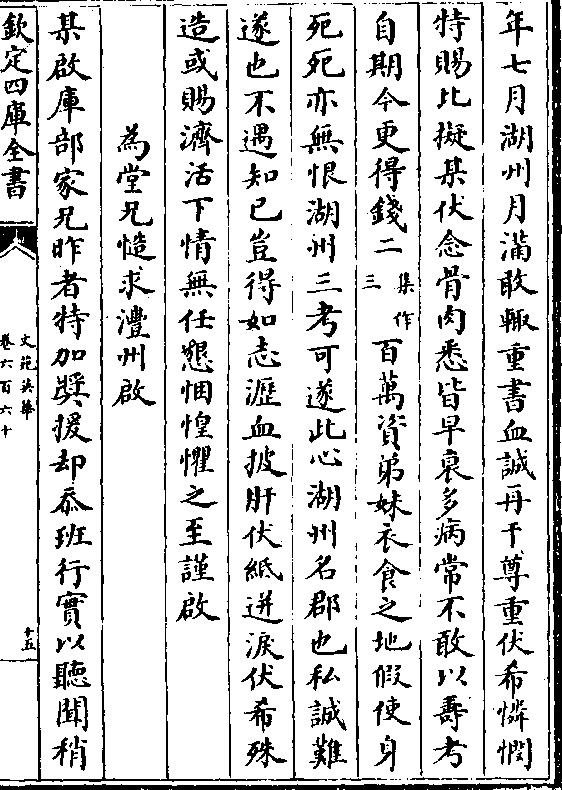 年七月湖州月滿敢輙重書血誠再干尊重伏希憐憫
特賜比擬某伏念骨肉悉皆早衰多病常不敢以壽考
自期今更得錢二集作三百萬資弟妹衣食之地假使身
死死亦無恨湖州三考可遂此心湖州名郡也私誠難
遂也不遇知已豈得如志瀝血披肝伏紙迸淚伏希殊
造或賜濟活下情無任懇悃惶懼之至謹啟
為堂兄慥求澧州啟
某啟庫部家兄昨者特加奬援却忝班行實以聽聞稍
欽定四庫全書
文苑英華
卷六百六十
十五